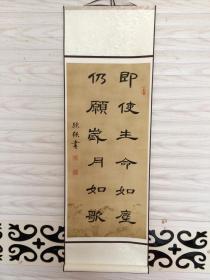 即使生命如塵
仍願歲月如歌